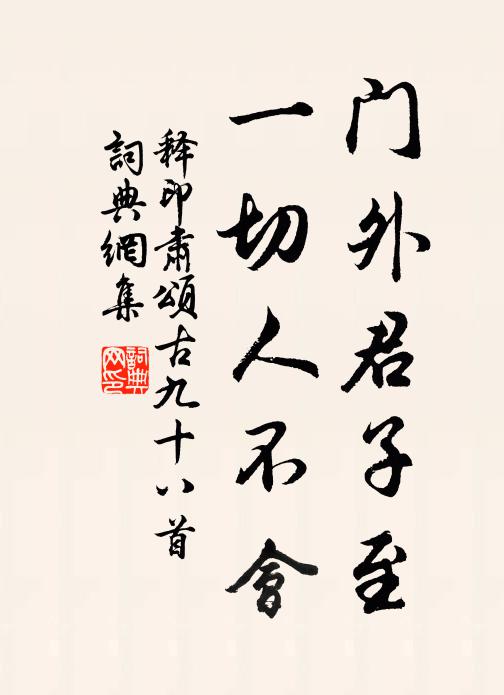 门外君子至
一切人不會
释印肃頌古九十八首
詞典網集
詞典网印